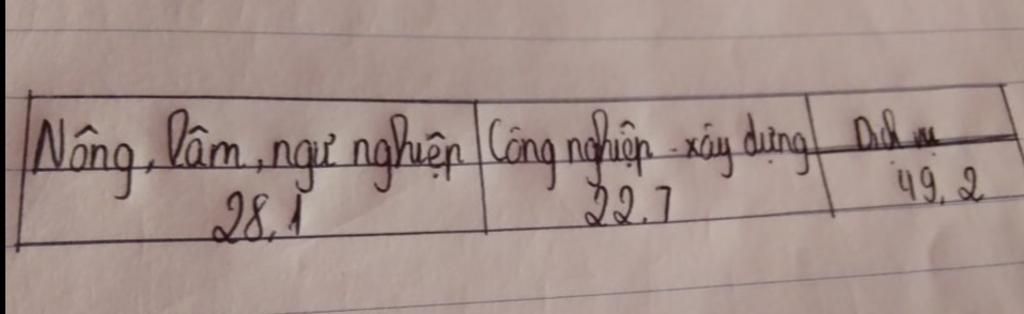 Nông, lâm, ngư nghiệp Công nghiệp - xây dựng Dịch vụ
28,1 22.7 49.2